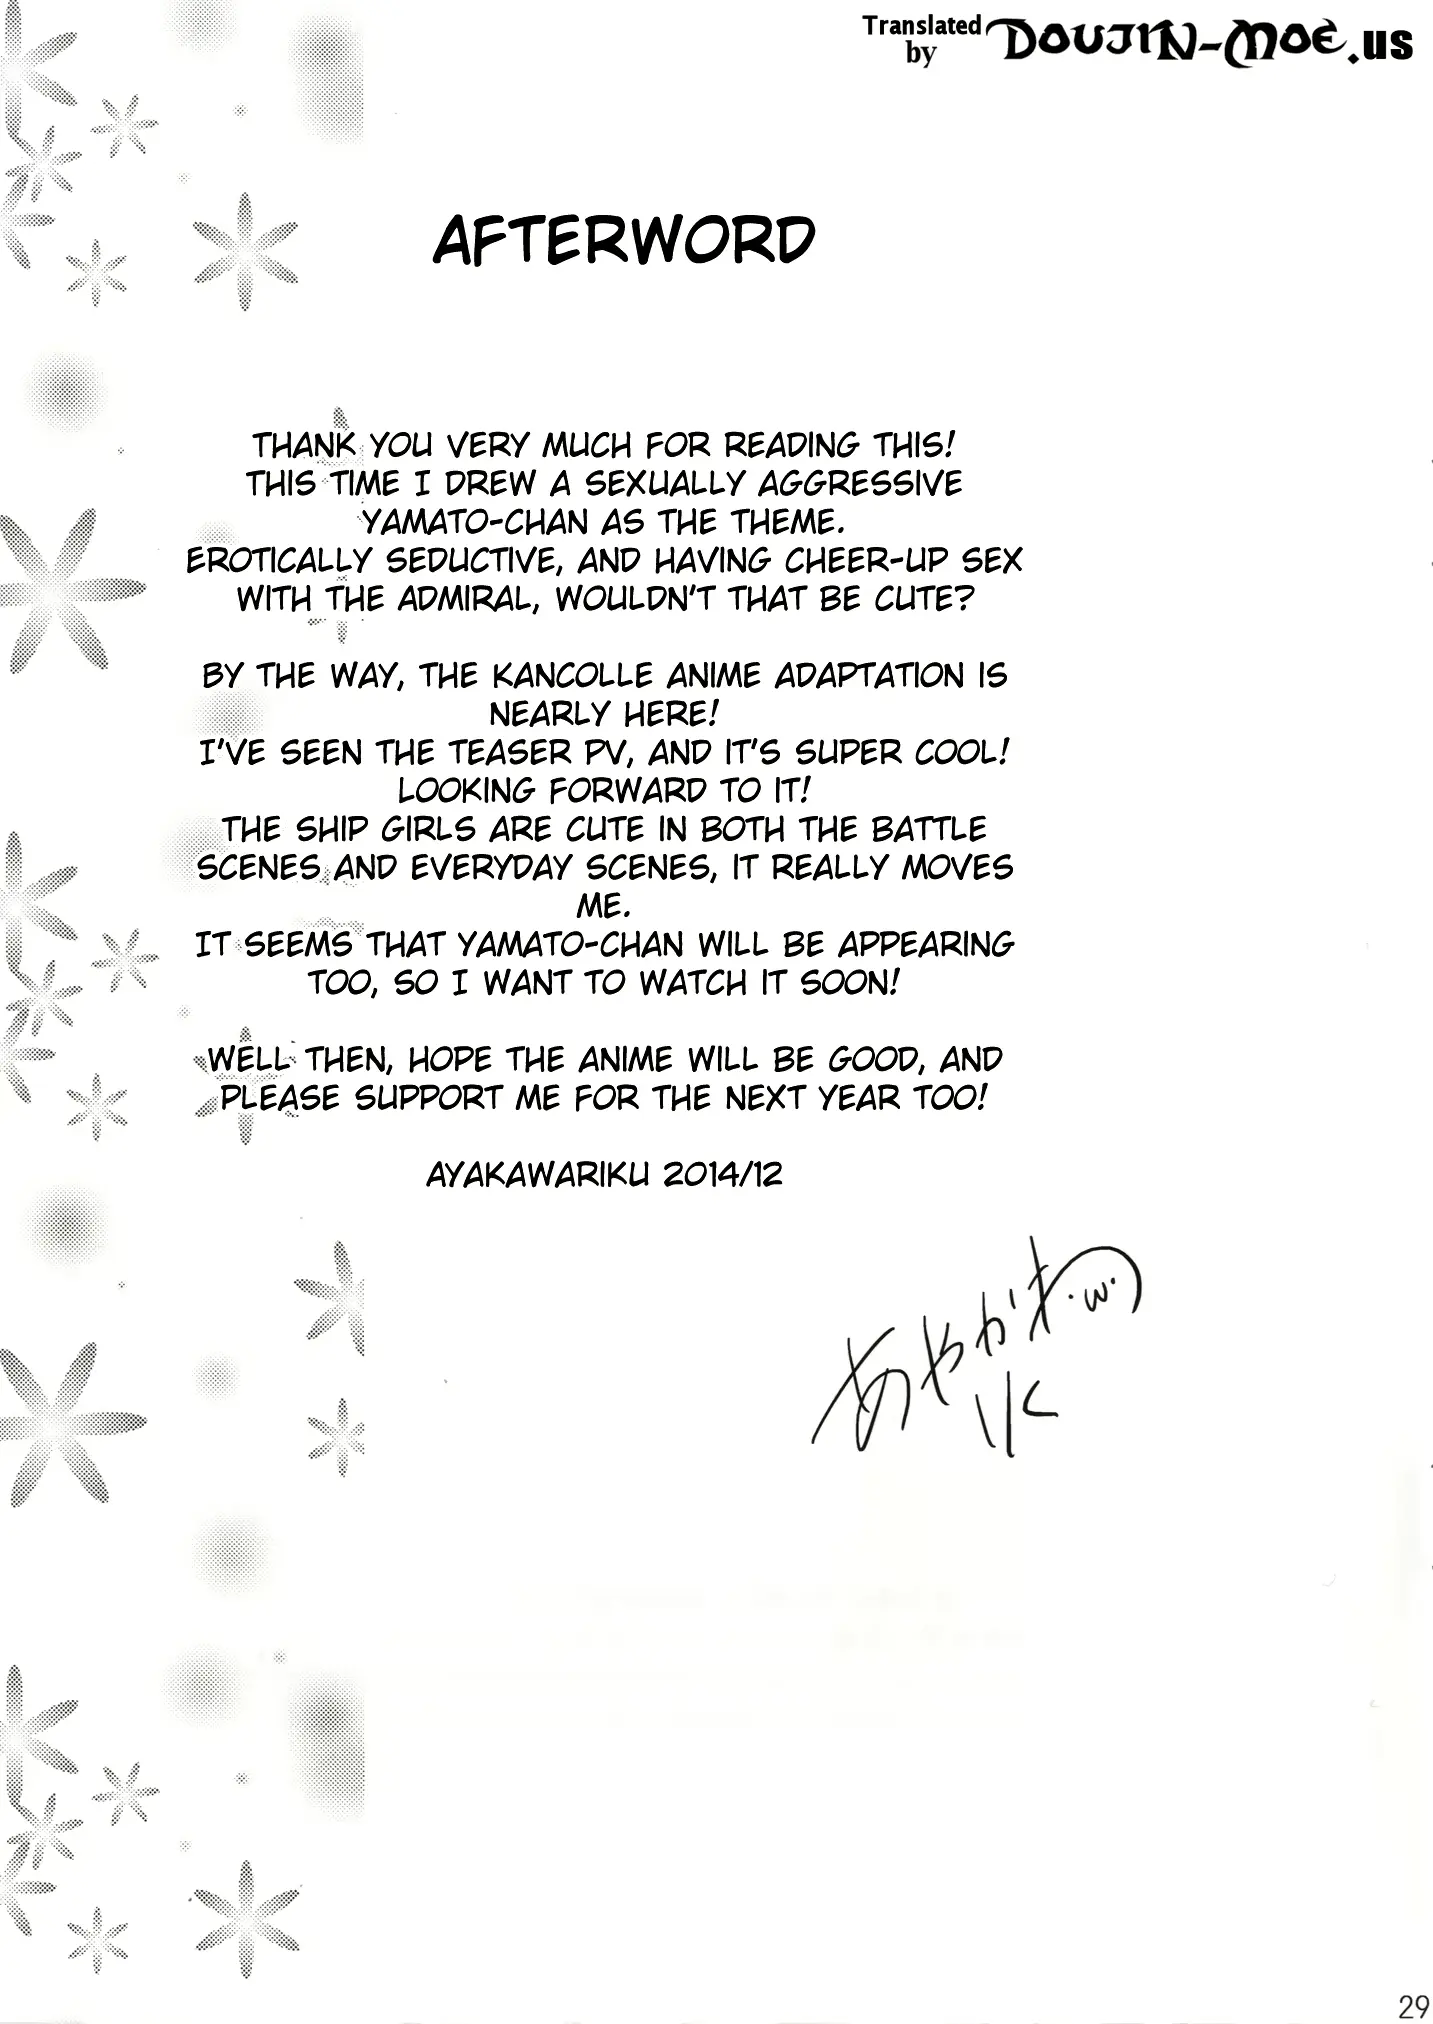 Translated
by
DOUJIN-MOE.us
AFTERWORD
THANK YOU VERY MUCH FOR READING THIS!
THIS TIME I DREW A SEXUALLY AGGRESSIVE
YAMATO-CHAN AS THE THEME.
EROTICALLY SEDUCTIVE, AND HAVING CHEER-UP SEX
WITH THE ADMIRAL, WOULDN'T THAT BE CUTE?
BY THE WAY, THE KANCOLLE ANIME ADAPTATION IS
NEARLY HERE!
I'VE SEEN THE TEASER PV, AND IT'S SUPER COOL!
LOOKING FORWARD TO IT!
THE SHIP GIRLS ARE CUTE IN BOTH THE BATTLE
SCENES AND EVERYDAY SCENES, IT REALLY MOVES
ME.
IT SEEMS THAT YAMATO-CHAN WILL BE APPEARING
TOO, SO I WANT TO WATCH IT SOON!
WELL THEN, HOPE THE ANIME WILL BE GOOD, AND
PLEASE SUPPORT ME FOR THE NEXT YEAR TOO!
AYAKAWARIKU 2014/12
あやかわ
りく
29